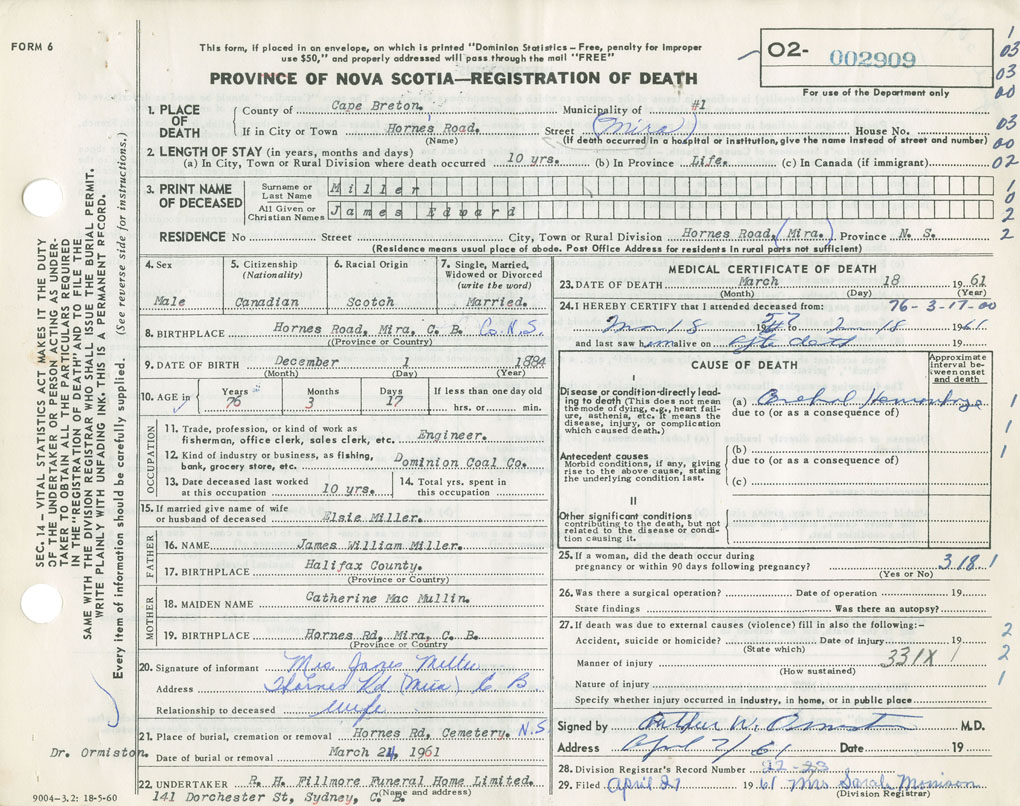 FORM 6
This form, if placed in an envelope, on which is printed "Dominion Statistics – Free, penalty for improper
use $50," and properly addressed will pass through the mail "FREE"
PROVINCE OF NOVA SCOTIA—REGISTRATION OF DEATH
02- 002909
For use of the Department only
1. PLACE OF DEATH
County of Cape Breton, Municipality of #1
If in City or Town Hornes Road. Street (Mira) House No.
(Name) (If death occurred in a hospital or institution, give the name instead of street and number)
2. LENGTH OF STAY (in years, months and days)
(a) In City, Town or Rural Division where death occurred 10 yrs. (b) In Province Life. (c) In Canada (if immigrant)
3. PRINT NAME OF DECEASED
Surname or Last Name Miller
All Given or Christian Names James Edward
RESIDENCE No Street City, Town or Rural Division Hornes Road, (Mira.) Province N. S.
(Residence means usual place of abode. Post Office Address for residents in rural parts not sufficient)
4. Sex Male
5. Citizenship (Nationality) Canadian
6. Racial Origin Scotch
7. Single, Married, Widowed or Divorced (write the word) Married.
8. BIRTHPLACE Hornes Road, Mira, C. B. Co. N.S.
(Province or Country)
9. DATE OF BIRTH December 1 1884
(Month) (Day) (Year)
10. AGE in Years 76 Months 3 Days 17 If less than one day old
hrs. or min.
OCCUPATION
11. Trade, profession, or kind of work as
fisherman, office clerk, sales clerk, etc. Engineer.
12. Kind of industry or business, as fishing,
bank, grocery store, etc. Dominion Coal Co.
13. Date deceased last worked
at this occupation 10 yrs.
14. Total yrs. spent in
this occupation
15. If married give name of wife
or husband of deceased Elsie Miller.
FATHER
16. NAME James William Miller.
17. BIRTHPLACE Halifax County.
(Province or Country)
MOTHER
18. MAIDEN NAME Catherine Mac Mullin.
19. BIRTHPLACE Hornes Rd, Mira, C. B.
(Province or Country)
20. Signature of informant Mrs James Miller
Address Hornes Rd (Mira) C B.
Relationship to deceased wife
21. Place of burial, cremation or removal Hornes Rd, Cemetery. N.S
Date of burial or removal March 21, 1961
Dr. Ormiston.
22. UNDERTAKER R. H. Fillmore Funeral Home Limited.
(Name and address)
141 Dorchester St, Sydney, C. B.
9004-3.2: 18-5-60
MEDICAL CERTIFICATE OF DEATH
23. DATE OF DEATH March 18 1961
(Month) (Day) (Year)
24. I HEREBY CERTIFY that I attended deceased from: 76-3-17-00
18 1957 to 18 1961
and last saw him alive on after death
CAUSE OF DEATH
Approximate interval between onset and death
I
Disease or condition directly leading
to death (This does not mean
the mode of dying, e.g., heart failure,
asthenia, etc. It means the
disease, injury, or complication
which caused death.)
(a) Cerebral Hemorrhage
due to (or as a consequence of)
Antecedent causes
Morbid conditions, if any, giving
rise to the above cause, stating
the underlying condition last.
(b)
due to (or as a consequence of)
(c)
II
Other significant conditions
contributing to the death, but not
related to the disease or condition
causing it.
25. If a woman, did the death occur during
pregnancy or within 90 days following pregnancy? 318 1
(Yes or No)
26. Was there a surgical operation? Date of operation 19
State findings Was there an autopsy?
27. If death was due to external causes (violence) fill in also the following:–
Accident, suicide or homicide? Date of injury 19
(State which)
Manner of injury 331X 1
(How sustained)
Nature of injury
Specify whether injury occurred in industry, in home, or in public place
Signed by Arthur W. Ormiston M.D.
Address April 7/61 Date 19
28. Division Registrar's Record Number 22-23
29. Filed April 27 1961 Mrs Sarah Morrison
(Division Registrar)
SEC. 14 – VITAL STATISTICS ACT MAKES IT THE DUTY
OF THE UNDERTAKER OR PERSON ACTING AS UNDERTAKER
TO OBTAIN ALL THE PARTICULARS REQUIRED
IN THE "REGISTRATION OF DEATH" AND TO FILE THE
SAME WITH THE DIVISION REGISTRAR WHO SHALL ISSUE THE BURIAL PERMIT.
WRITE PLAINLY WITH UNFADING INK. THIS IS A PERMANENT RECORD.
Every item of information should be carefully supplied. (See reverse side for instructions.)
1
03
03
00
03
00
02
1
0
2
2
1
1
1
2
2
1